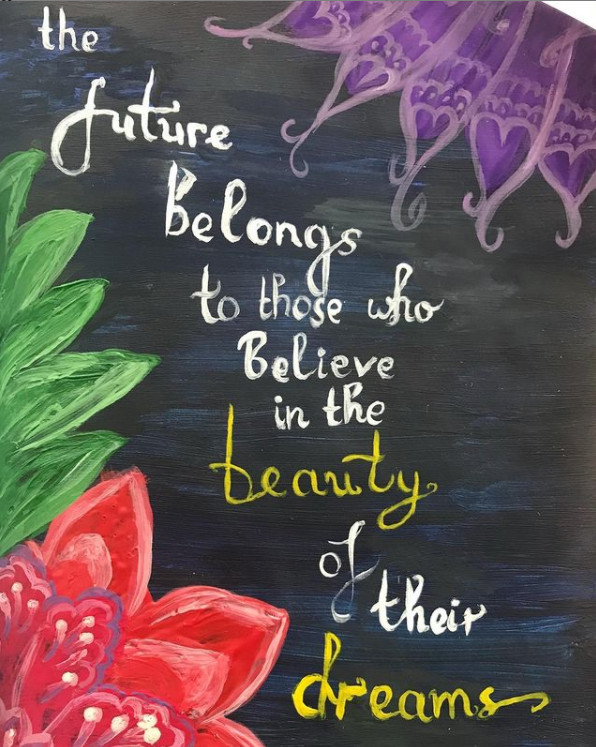 the
future
Belongs
to those who
Believe
in the
beauty
of
their
dreams